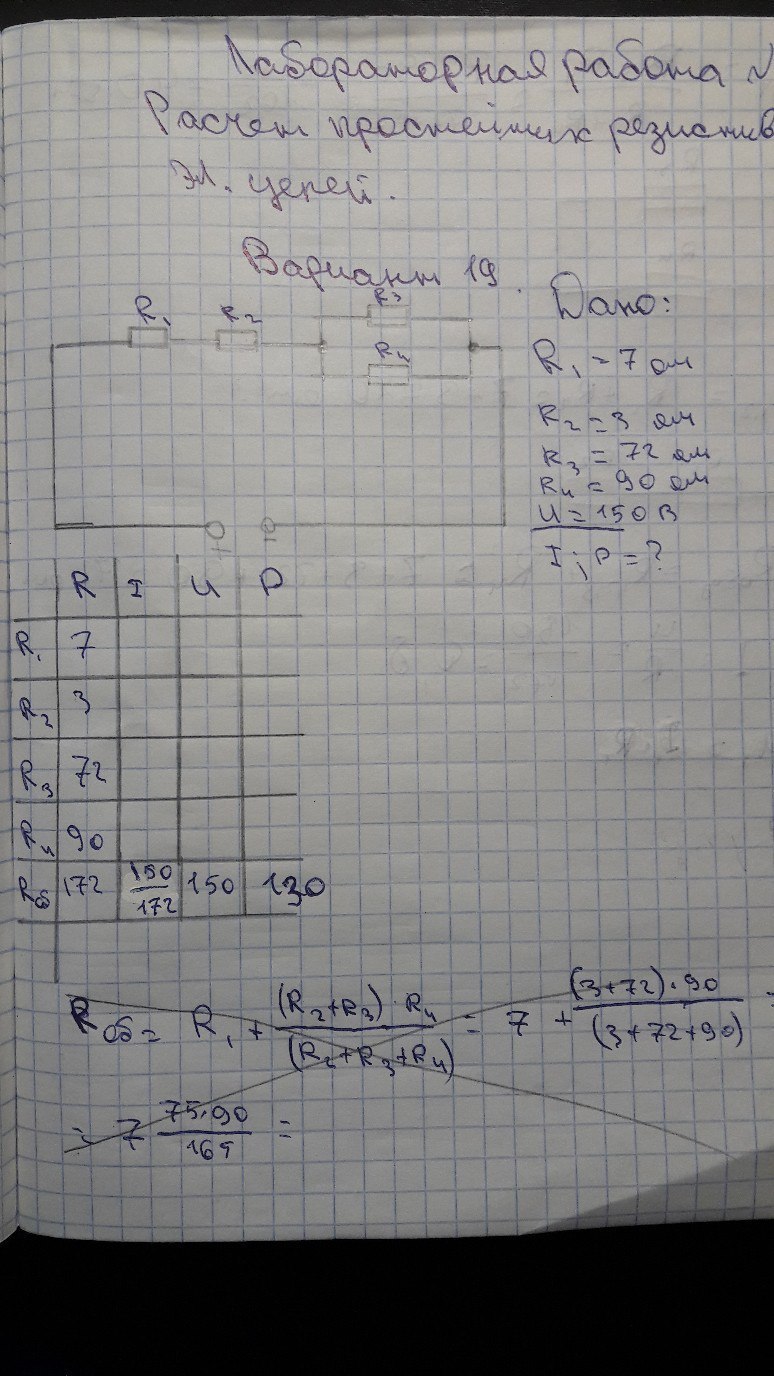 Лабораторная работа
Расчет простейших резистив
эл. цепей.
Вариант 19.
R1 R2 R3
R4
Дано:
R1 = 7 ом
R2 = 3 ом
R3 = 72 ом
R4 = 90 ом
U = 150 В
I; P = ?
+O -O
R I U P
R1 7
R2 3
R3 72
R4 90
Rоб 172 150/172 150 130
Rоб = R1 + (R2+R3)·R4/(R2+R3+R4) = 7 + (3+72)·90/(3+72+90) =
= 7 75·90/165 =